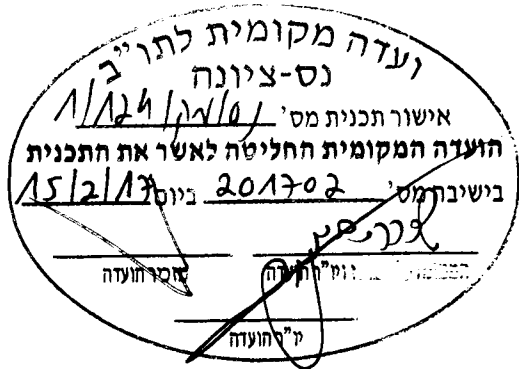 ועדה מקומית לתו"ב
נס-ציונה
אישור תכנית מס' נס/מק/1/124
הועדה המקומית החליטה לאשר את התכנית
בישיבה מס' 201702 ביום 15/2/17
יו"ר הועדה